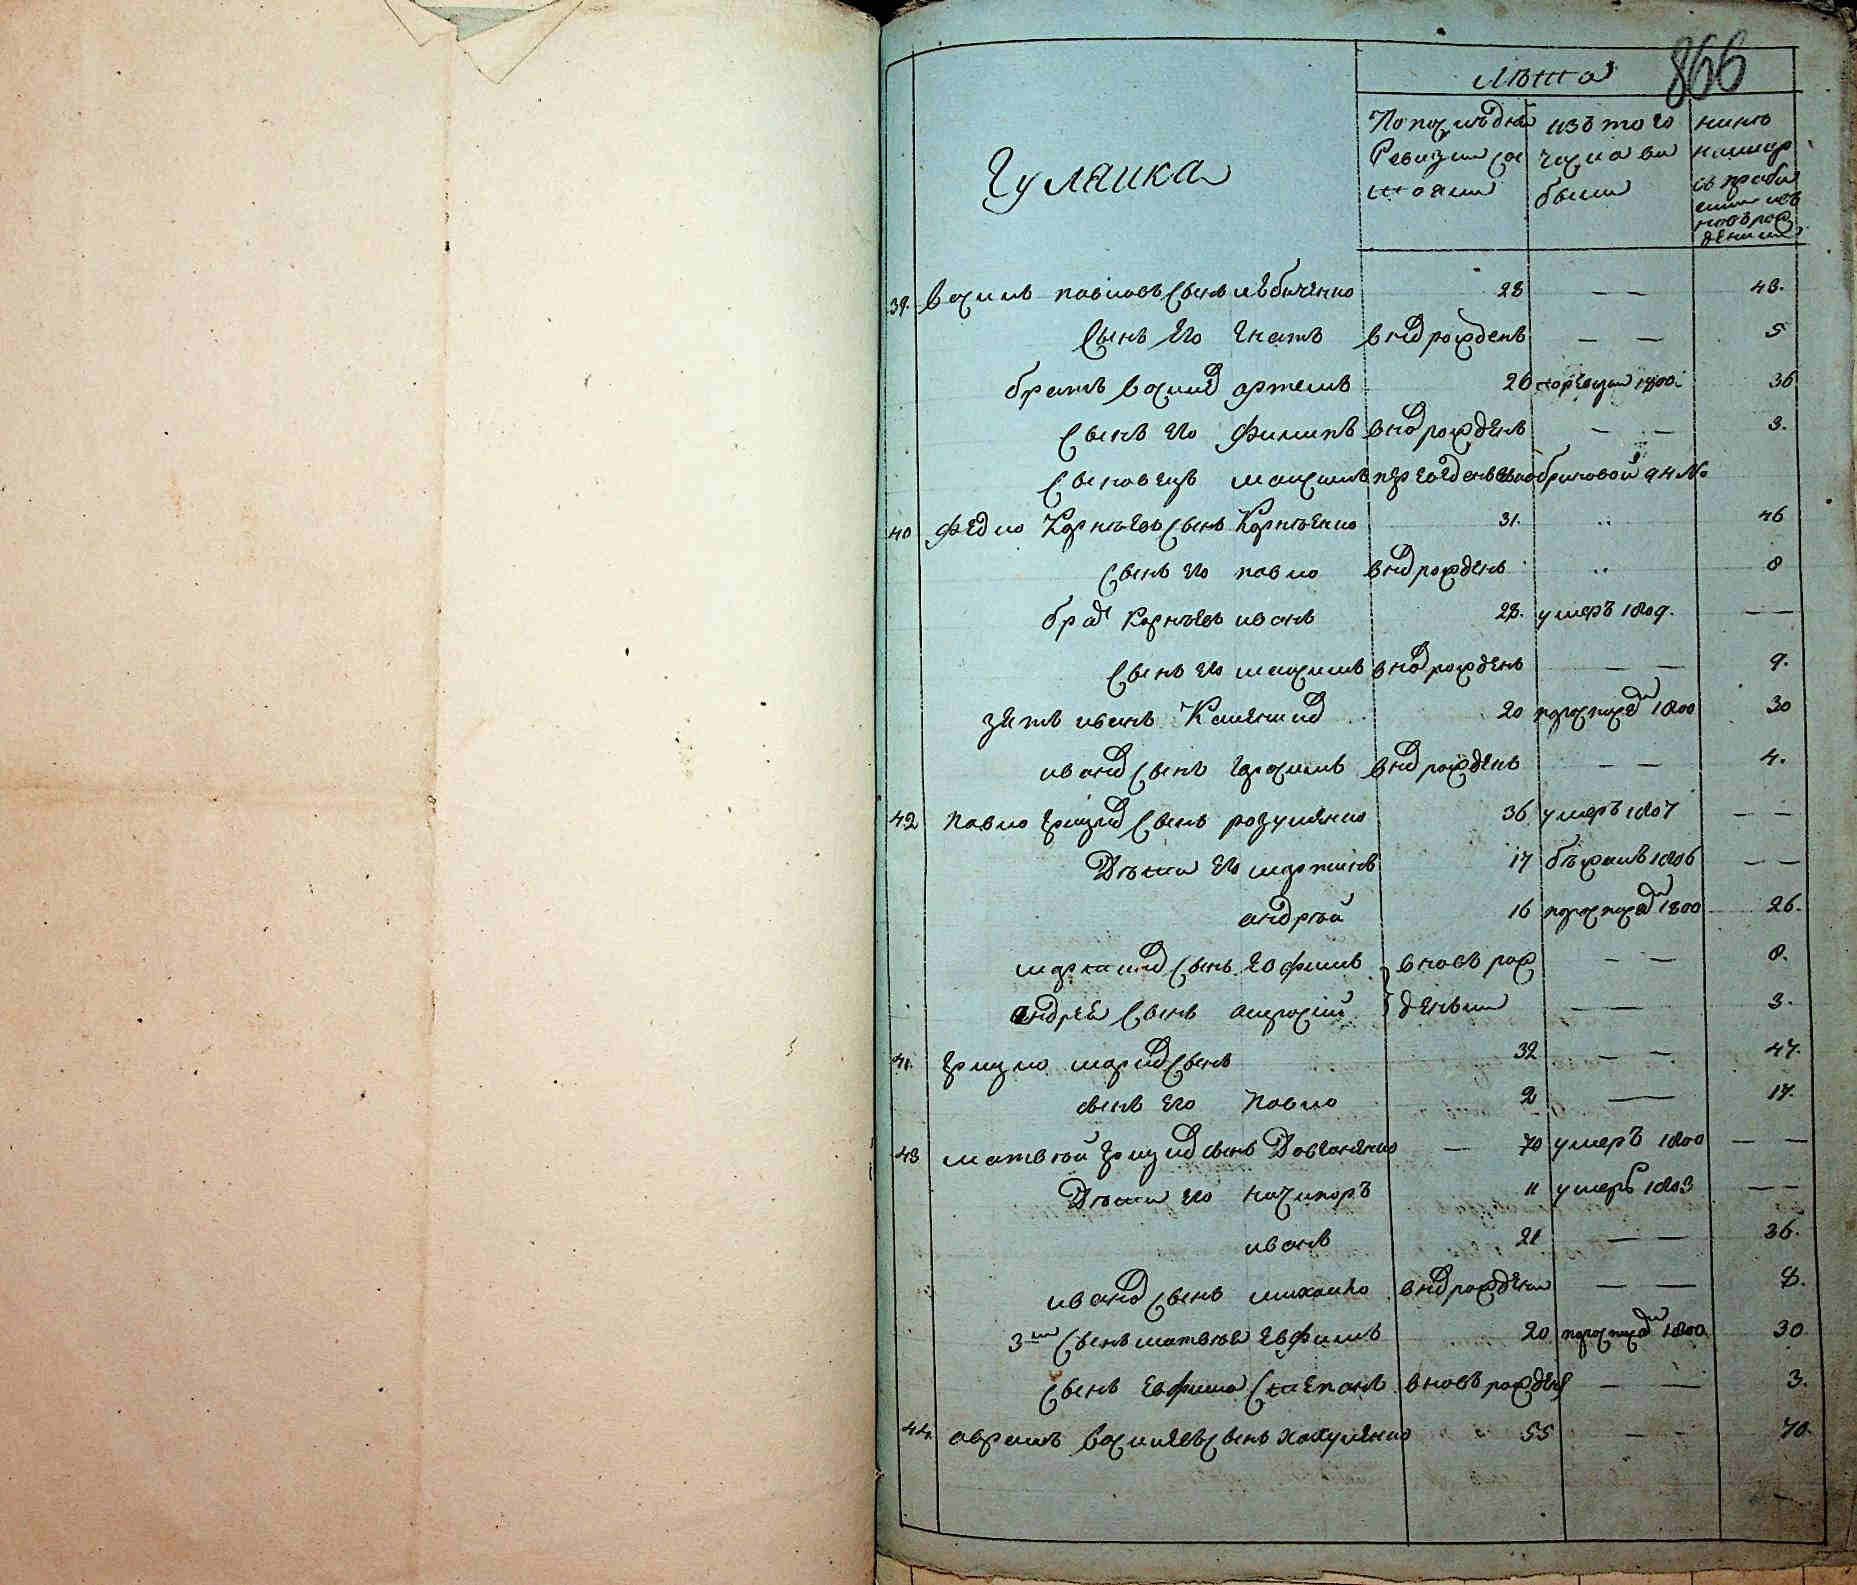 866
Лѣта
Чулаика
По послѣдней Ревизіи состояли
изъ того числа выбыли
нынѣ на лицо съ прибылыми и новорожденными
39. Василь павловъ сынъ 28 — — 43.
Сынъ его Гнатъ вновъ рожденъ — — 5
братъ василевъ артемъ 26 1800. 36
Сынъ его Филипъ вновъ рожденъ — — 3.
максимъ
40 Федко Корнѣевъ сынъ Корнѣенко 31. 46
Сынъ его павло вновъ рожденъ 8
братъ Корнѣевъ иванъ 28. умеръ 1809. — —
Сынъ его максимъ вновъ рожденъ — — 9.
зять иванъ 20 1800 30
ивановъ сынъ герасимъ вновъ рожденъ — — 4.
42 павло грицковъ сынъ розумѣнко 36 умеръ 1807 — —
Дѣти его мартинъ 17 бѣжалъ 1806 — —
андрѣй 16 1800 26.
мартиновъ сынъ Ефимъ вновъ рож — — 8.
андрея сынъ амвросій денные — — 3.
41. грицко марковъ сынъ 32 — — 47.
сынъ его павло 2 — 17.
43 матвѣй грицковъ сынъ Довганенко — 70 умеръ 1800 — —
Дѣти его ничипоръ 11 умеръ 1803 — —
иванъ 21 — — 36.
ивановъ сынъ михайло вновъ рожденъ — — 8.
3й сынъ матвѣя Евфимъ 20 1800 30.
сынъ Евфима Степанъ вновъ рожденъ — — 3.
44. аврамъ василевъ сынъ 55 — — 70.